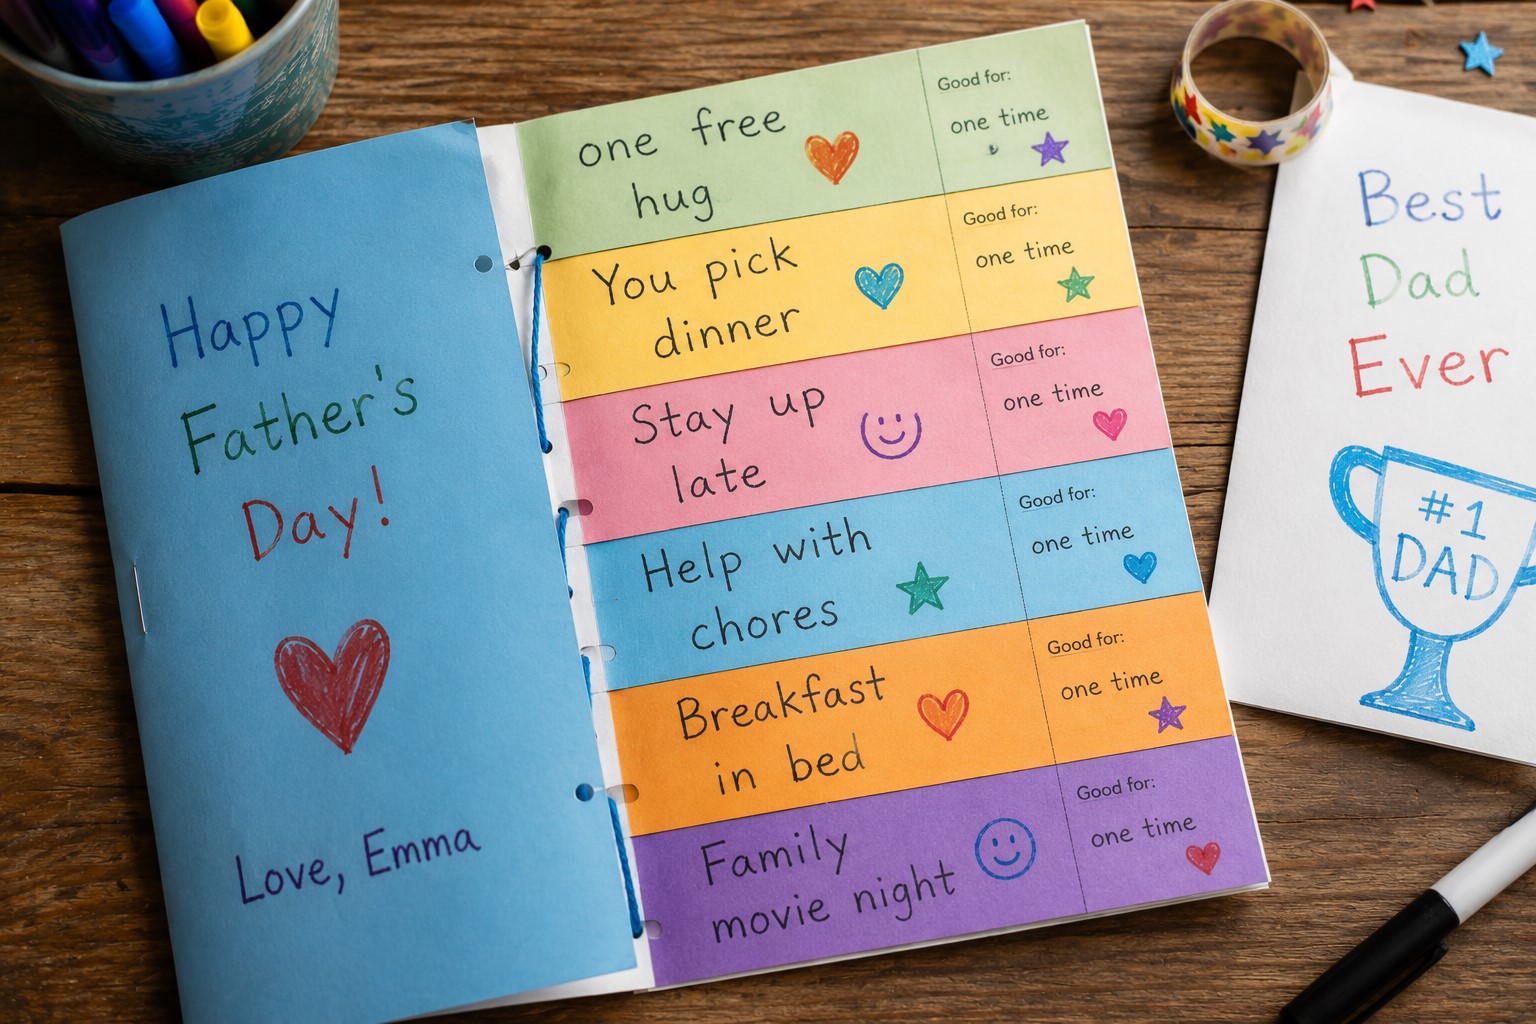 Happy
Father's
Day!
Love, Emma
one free
hug
Good for:
one time
You pick
dinner
Good for:
one time
Stay up
late
Good for:
one time
Help with
chores
Good for:
one time
Breakfast
in bed
Good for:
one time
Family
movie night
Good for:
one time
Best
Dad
Ever
#1
DAD